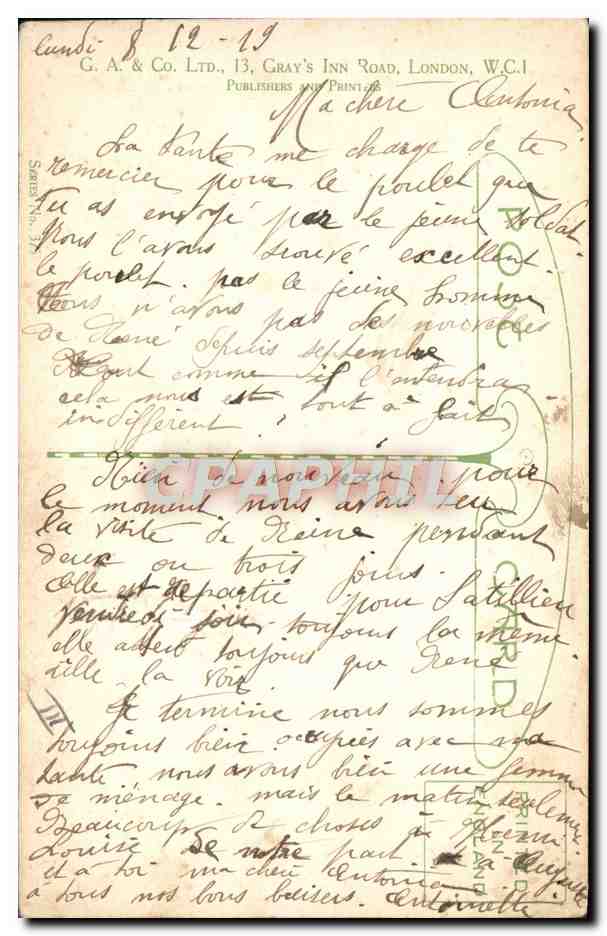 Lundi 8 12-19
G. A. & Co. LTD., 13, GRAY'S INN ROAD, LONDON, W.C.1
PUBLISHERS AND PRINTERS
Ma chère Antonia
La tante me charge de te
remercier pour le poulet que
tu as envoyé par le jeune soldat.
Nous l'avons trouvé excellent.
le poulet. pas le jeune homme
Nous n'avons pas des nouvelles
de René depuis septembre
tout comme il l'entendra
cela nous est tout à fait
indifférent.
Rien de nouveau pour
le moment nous avons eu
la visite de Reine pendant
deux ou trois jours.
elle est repartie pour Satillieu
vendredi soir toujours la même.
elle attend toujours que René
aille la voir.
Je termine nous sommes
toujours bien occupées avec ma
tante nous avons bien une femme
de ménage. mais le matin seulement
Beaucoup de choses à
Louise de notre part à Auguste
et à toi ma chère Antonia
à tous nos bons baisers. Antoinette
SERIES NO. 3
POST CARD
PRINTED
IN
ENGLAND
III
CPAPHIL